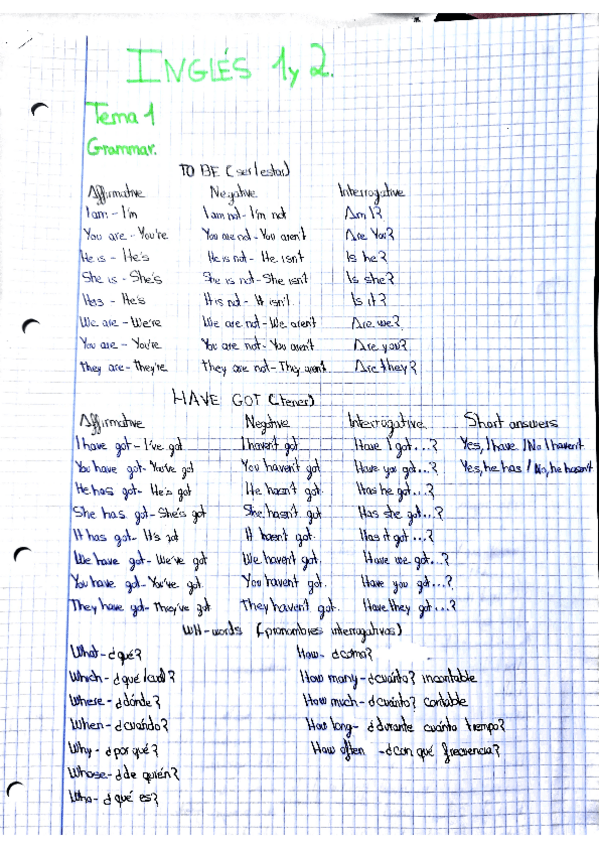 INGLÉS 1 y 2.
Tema 1
Grammar.
TO BE (ser/estar)
Affirmative Negative Interrogative
I am - I'm I am not - I'm not Am I?
You are - You're You are not - You aren't Are You?
He is - He's He is not - He isn't Is he?
She is - She's She is not - She isn't Is she?
- He's It is not - It isn't Is it?
We are - We're We are not - We aren't Are we?
You are - You're You are not - You aren't Are you?
They are - They're They are not - They aren't Are they?
HAVE GOT (tener)
Affirmative Negative Interrogative Short answers
I have got - I've got I haven't got Have I got...? Yes, I have / No I haven't
You have got - You've got You haven't got Have you got...? Yes, he has / No, he hasn't
He has got - He's got He hasn't got Has he got...?
She has got - She's got She hasn't got Has she got...?
It has got - It's got It hasn't got. Has it got...?
We have got - We've got We haven't got. Have we got...?
You have got - You've got. You haven't got. Have you got...?
They have got - They've got They haven't got. Have they got...?
WH-words (pronombres interrogativos)
What - ¿qué? How - ¿cómo?
Which - ¿qué/cuál? How many - ¿cuánto? incontable
Where - ¿dónde? How much - ¿cuánto? contable
When - ¿cuándo? How long - ¿durante cuánto tiempo?
Why - ¿por qué? How often - ¿con qué frecuencia?
Whose - ¿de quién?
Who - ¿qué es?